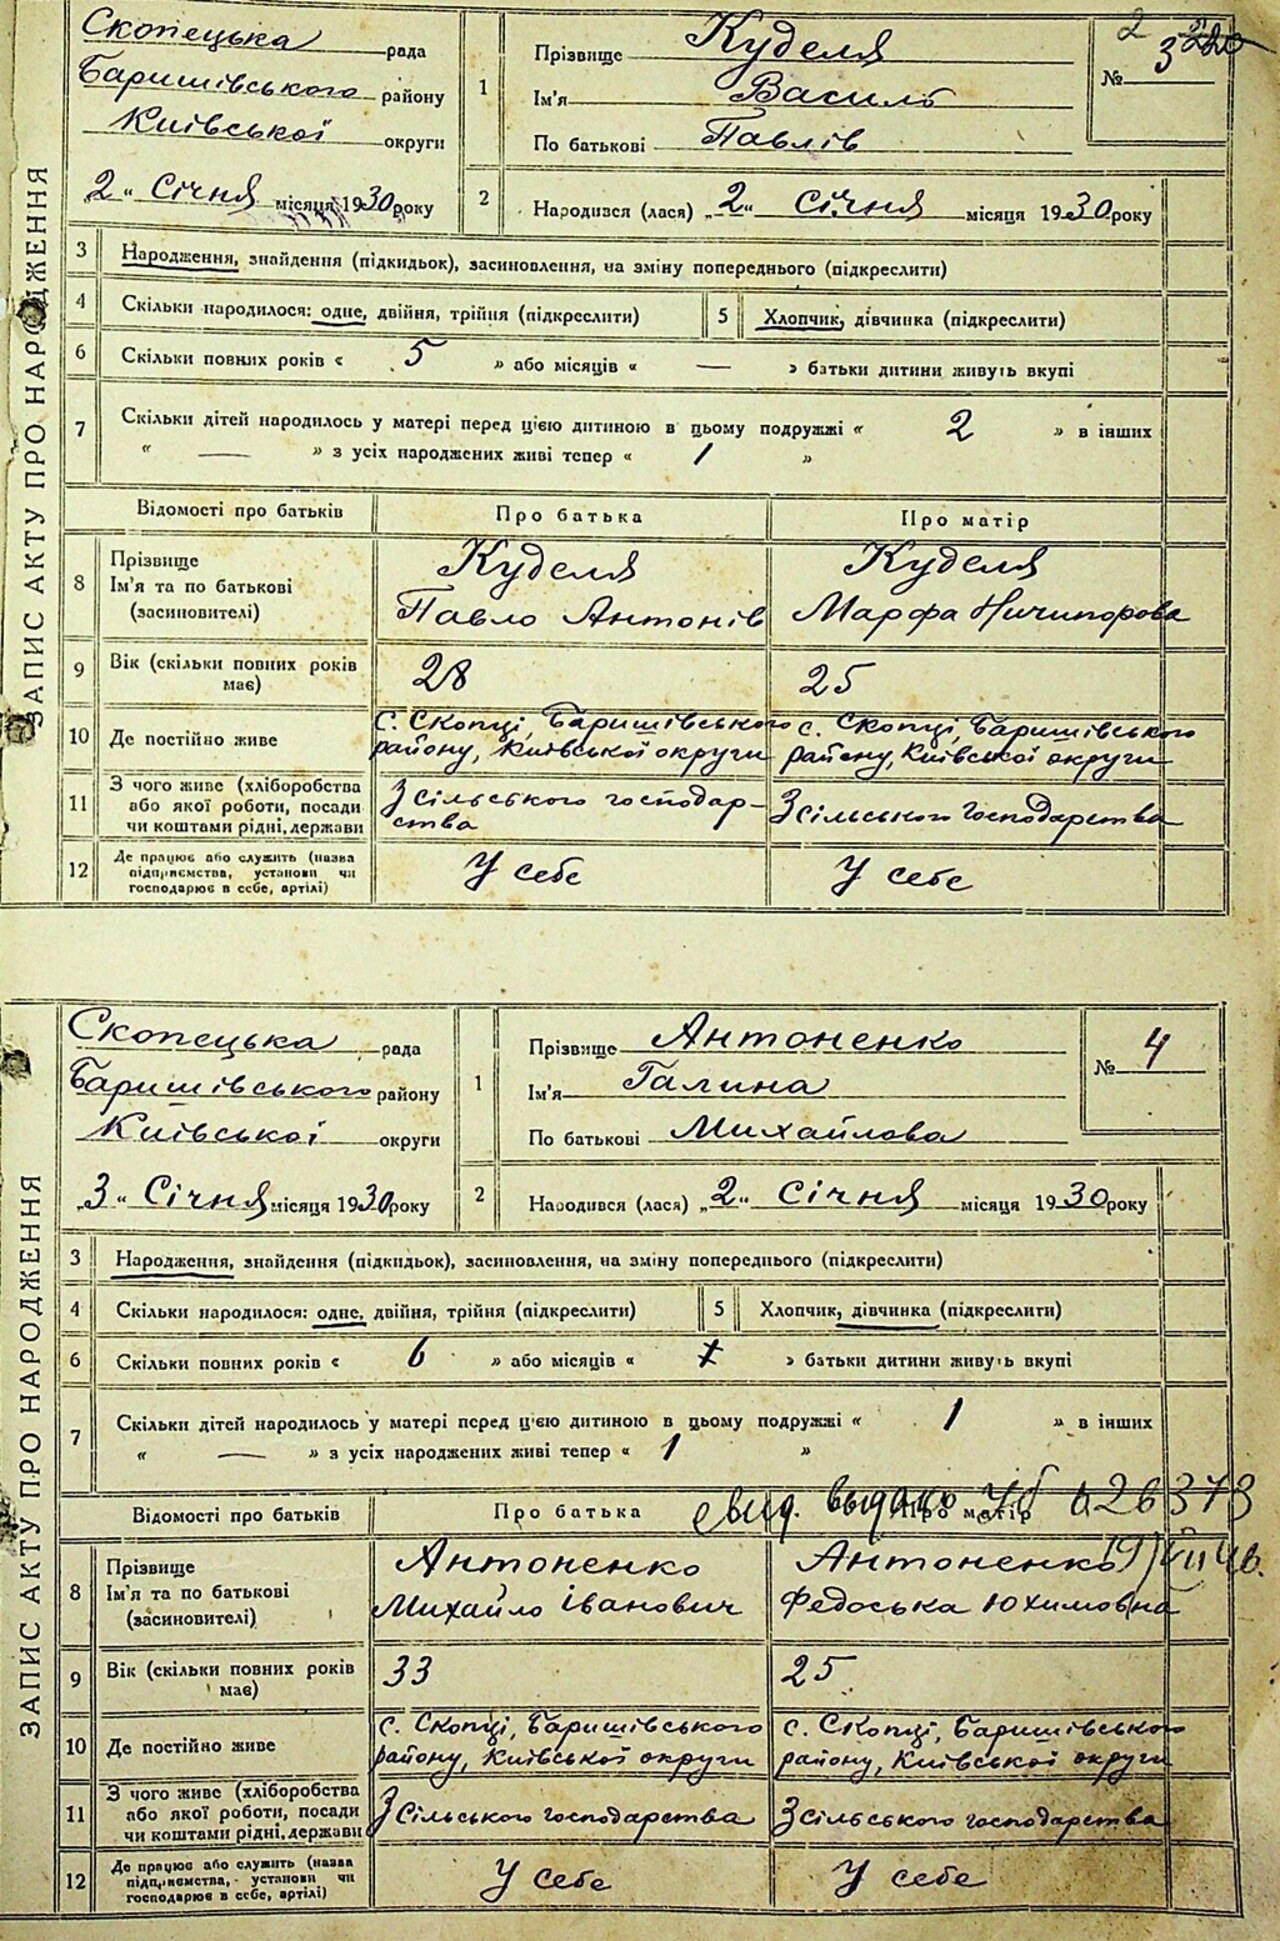 ЗАПИС АКТУ ПРО НАРОДЖЕННЯ
Скопецька рада
Баришівського району
Київської округи
„2" Січня місяця 1930 року
1
Прізвище Куделя
Ім'я Василь
По батькові Павлів
2
№ 3
2 Народився (лася) „2" Січня місяця 1930 року
3 Народження, знайдення (підкидьок), засиновлення, на зміну попереднього (підкреслити)
4 Скільки народилося: одне, двійня, трійня (підкреслити) 5 Хлопчик, дівчинка (підкреслити)
6 Скільки повних років « 5 » або місяців « — » батьки дитини живуть вкупі
7 Скільки дітей народилось у матері перед цією дитиною в цьому подружжі « 2 » в інших
« — » з усіх народжених живі тепер « 1 »
Відомості про батьків Про батька Про матір
8 Прізвище Куделя Куделя
Ім'я та по батькові Павло Антонів Марфа Ничипорова
(засиновителі)
9 Вік (скільки повних років 28 25
має)
10 Де постійно живе с. Скопці, Баришівського с. Скопці, Баришівського
району, Київської округи району, Київської округи
11 З чого живе (хліборобства З сільського господар- З сільського господарства
або якої роботи, посади ства
чи коштами рідні, держави
12 Де працює або служить (назва У себе У себе
підприємства, установи чи
господарює в себе, артілі)
ЗАПИС АКТУ ПРО НАРОДЖЕННЯ
Скопецька рада
Баришівського району
Київської округи
„3" Січня місяця 1930 року
1
Прізвище Антоненко
Ім'я Галина
По батькові Михайлова
№ 4
2 Народився (лася) „2" Січня місяця 1930 року
3 Народження, знайдення (підкидьок), засиновлення, на зміну попереднього (підкреслити)
4 Скільки народилося: одне, двійня, трійня (підкреслити) 5 Хлопчик, дівчинка (підкреслити)
6 Скільки повних років « 6 » або місяців « » батьки дитини живуть вкупі
7 Скільки дітей народилось у матері перед цією дитиною в цьому подружжі « 1 » в інших
« — » з усіх народжених живі тепер « 1 »
свид. выдано 026373
Відомості про батьків Про батька Про матір
8 Прізвище Антоненко Антоненко
Ім'я та по батькові Михайло Іванович Федоська Юхимовна
(засиновителі)
9 Вік (скільки повних років 33 25
має)
10 Де постійно живе с. Скопці, Баришівського с. Скопці, Баришівського
району, Київської округи району, Київської округи
11 З чого живе (хліборобства З сільського господарства З сільського господарства
або якої роботи, посади
чи коштами рідні, держави
12 Де працює або служить (назва У себе У себе
підприємства, установи чи
господарює в себе, артілі)